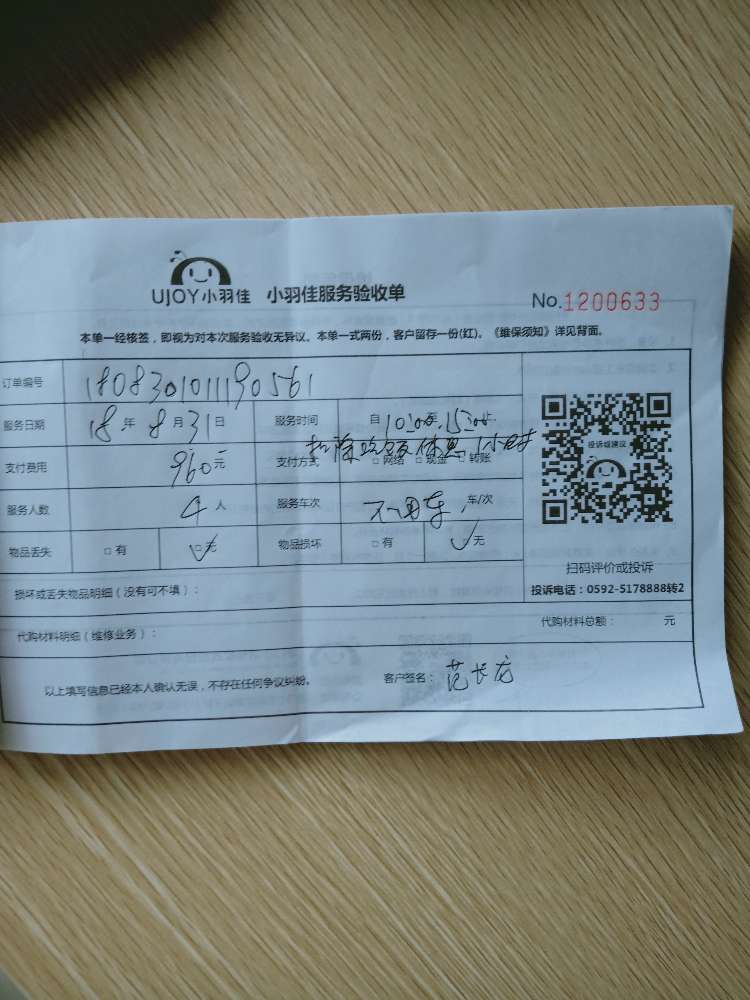 UJOY小羽佳 小羽佳服务验收单 No.1200633
本单一经核签，即视为对本次服务验收无异议。本单一式两份，客户留存一份(红)。《维保须知》详见背面。
订单编号 180830101190561
服务日期 18年8月31日 服务时间 自10:00至15:00止
扣除吃饭休息1小时
支付费用 960元 支付方式 □网络 □现金 □转账
服务人数 4人 服务车次 不用车,车/次
物品丢失 □有 ☑无 物品损坏 □有 ☑无
投诉或建议
扫码评价或投诉
损坏或丢失物品明细（没有可不填）： 投诉电话：0592-5178888转2
代购材料明细（维修业务）： 代购材料总额： 元
以上填写信息已经本人确认无误，不存在任何争议纠纷。 客户签名：范长龙